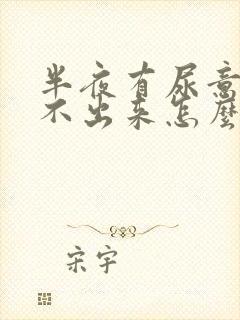 半夜有尿意
不出来怎麼
宋宇